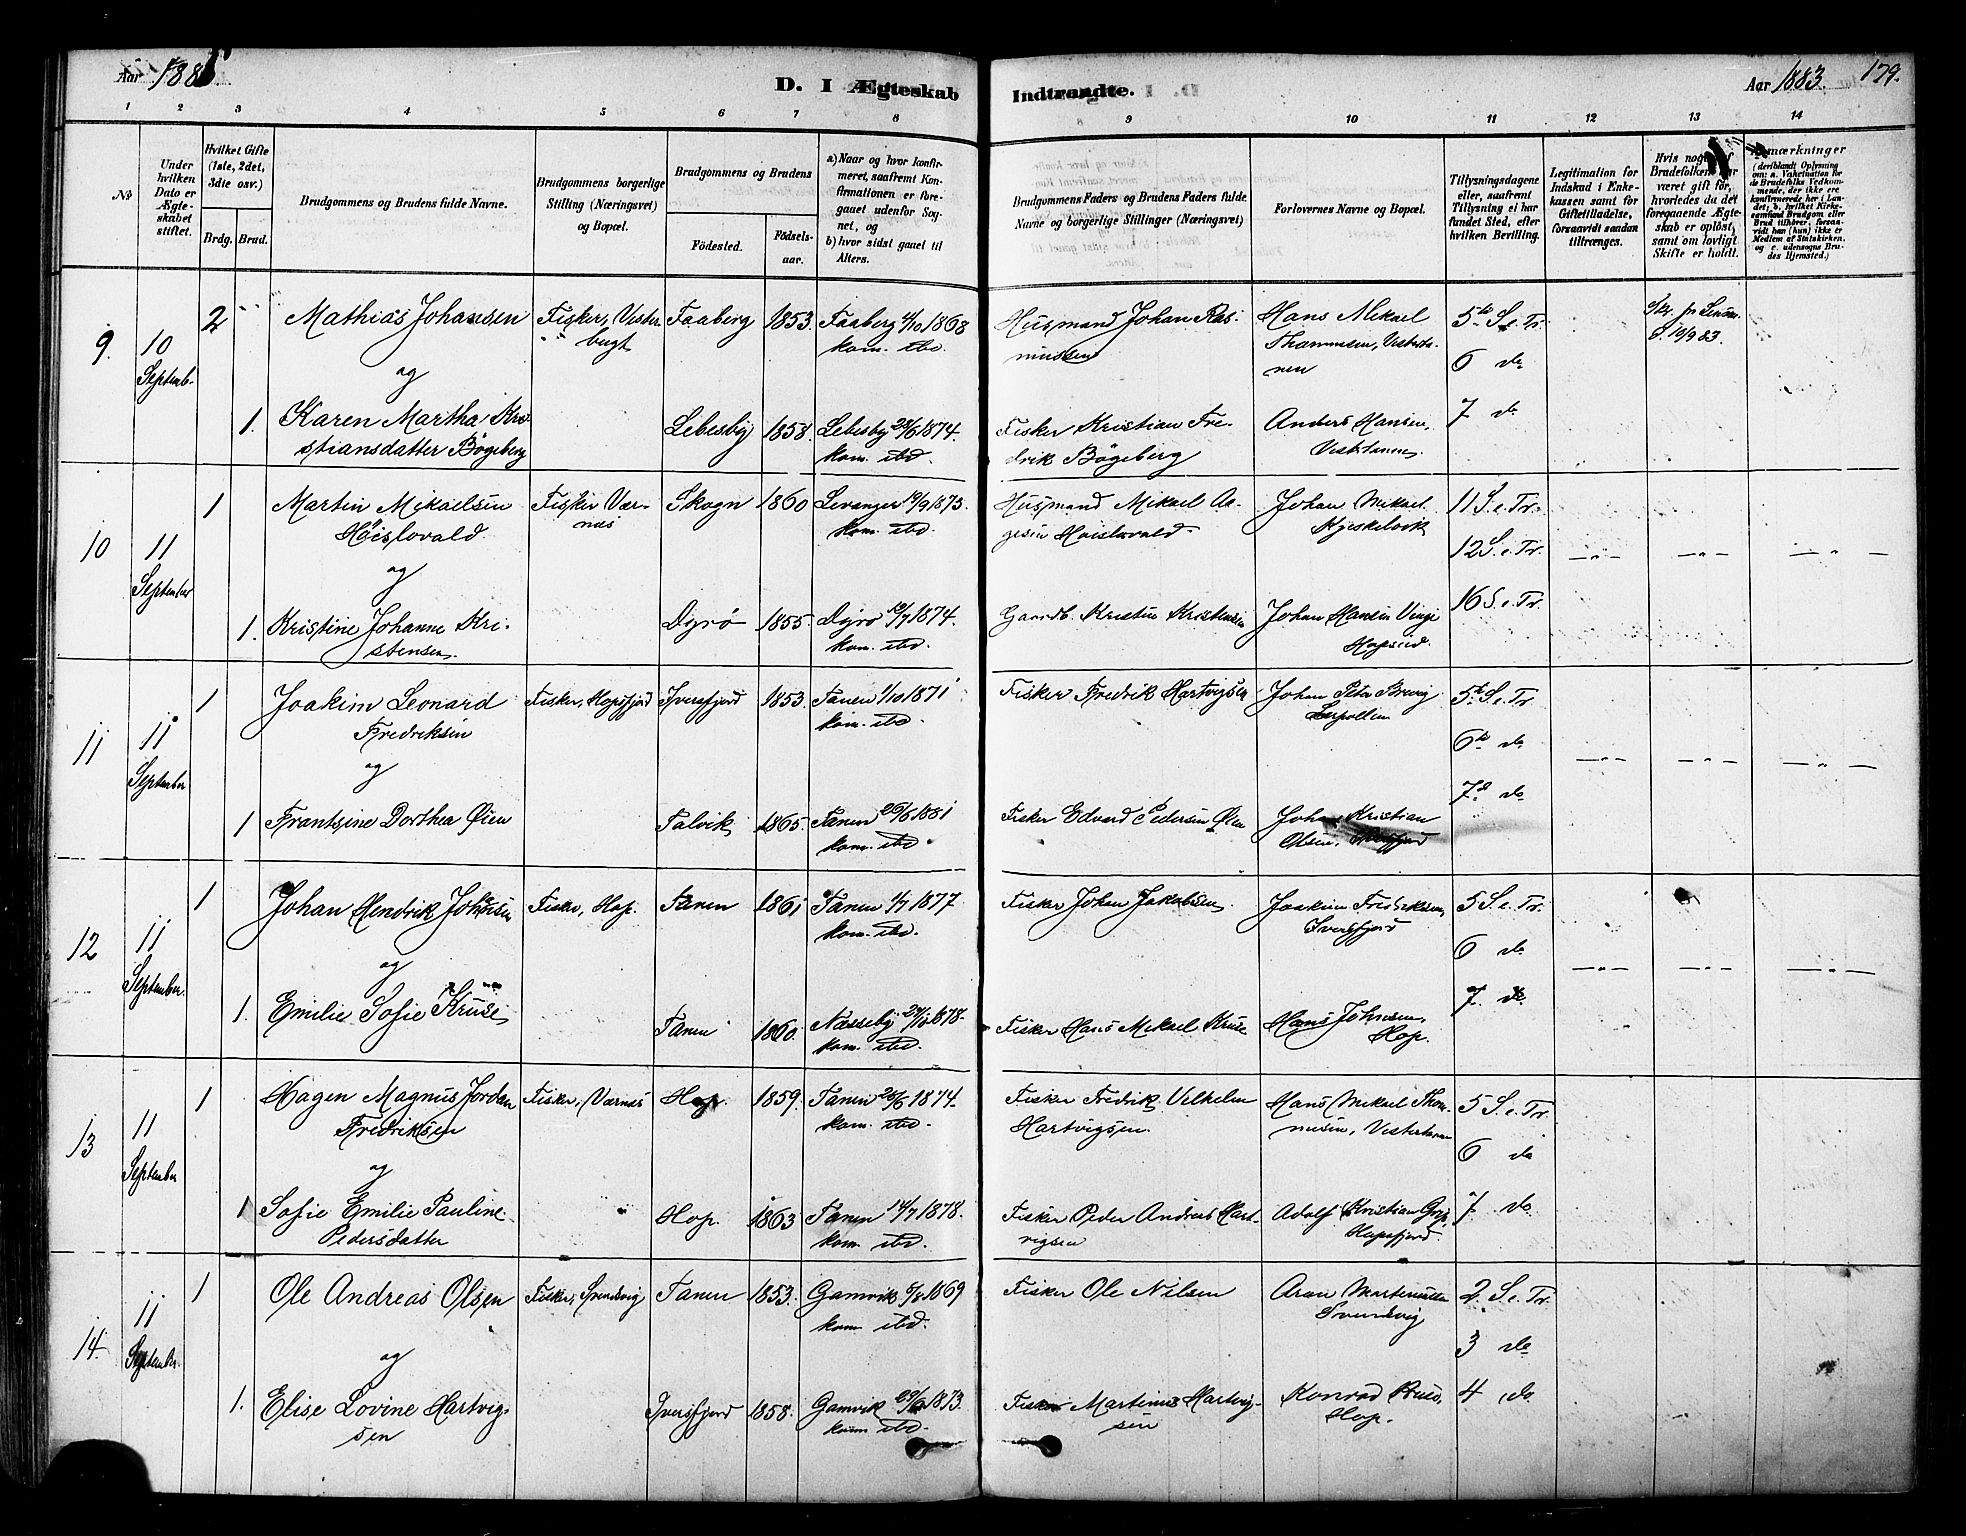 Aar 188
D. I Ægteskab Indtraadte.
Aar 1883.
179.
1 2 3 4 5 6 7 8 9 10 11 12 13 14
№
Under hvilken Dato er Ægteskabet stiftet.
Hvilket Gifte (1ste, 2det, 3die osv.)
Brdg. Brud.
Brudgommens og Brudens fulde Navne.
Brudgommens borgerlige Stilling (Næringsvei) og Bopæl.
Brudgommens og Brudens
Fødested.
Fødselsaar.
a) Naar og hvor konfirmeret, saafremt Konfirmationen er foregaaet udenfor Sognet, og
b) hvor sidst gaaet til Alters.
Brudgommens Faders og Brudens Faders fulde Navne og borgerlige Stillinger (Næringsvei)
Forlovernes Navne og Bopæl.
Tillysningsdagene eller, saafremt Tillysning ei har fundet Sted, efter hvilken Bevilling.
Legitimation for Indskud i Enkekassen samt for Giftetilladelse, forsaavidt saadan tiltrænges.
Hvis nogen af Brudefolkene har været gift før, hvorledes da det foregaaende Ægteskab er opløst, samt om lovligt Skifte er holdt.
Anmærkninger
9. 10 Septemb. 2 Mathias Johansen Fisker, Vesterbugt Faaberg 1853. Faaberg 4/10 1868 kom. ibd. Husmand Johan Rasmussen Hans Mikael Thommesen, Vestertanen 5te S. e. Tr.
og 6 do
1. Karen Martha Kristiansdatter Bøgeberg Lebesby 1858. Lebesby 28/6 1874. kom. ibd. Fisker Kristian Fredrik Bøgeberg Anders Hansen, Vestertanen 7 do
10 11 September 1 Martin Mikaelsen Høislovald Fisker Værnæs Skogn 1860 Levanger 19/9 1875. kom. ibd. Husmand Mikael Aagesen Høislovald Johan Mikael Kjeskelvik 11 S. e. Tr.
og 12 S. e. Tr.
1. Kristine Johanne Kristensen Dyrø 1855. Dyrø 19/7 1874. kom. ibd. Gaardb. Kristen Kristensen Johan Hansen Vinge Hopseid. 16 S. e. Tr.
11 11 September 1 Joakim Leonard Fredriksen Fisker, Hopsfjord Iversfjord 1853. Tanen 1/10 1871 kom. ibd. Fisker Fredrik Hartvigsen Johan Petr Brevig Leirpollen 5te S. e. Tr
og 6te do
1 Frantsine Dorthea Øien Talvik 1865. Tanen 26/6 1881 kom. ibd. Fisker Edvard Pedersen Øien Johan Kristian Olsen, Iversfjord 7de do
12 11 September. 1 Johan Hendrik Johansen Fisker, Hop. Tanen 1861 Tanen 1/7 1877 kom. ibd. Fisker Johan Jakobsen. Joakim Fredriksen, Iversfjord 5 S. e. Tr.
og 6 do
1. Emilie Sofie Kruse Tanen 1860. Næsseby 1878. kom. ibd. Fisker Hans Mikael Kruse Hans Johnsen. Hop. 7. do
13 11 September 1 Hagen Magnus Jordan Fredriksen Fisker, Værnæs Hop. 1859. Tanen 28/6 1874. kom. ibd. Fisker Fredrik Vilhelm Hartvigsen. Hans Mikael Thommesen, Vestertanen 5 S. e. Tr.
og 6 do
1 Sofie Emilie Pauline Pedersdatter Hop. 1863 Tanen 14/7 1878. kom. ibd. Fisker Peder Andreas Hartvigsen Adolf Kristian Hopsfjord. 7 do
14. 11 September. 1 Ole Andreas Olsen Fisker, Svendvig Tanen 1853. Gamvik 8/8 1869 kom ibd. Fisker Ole Nilsen Aron Martinussen Svendvig 2. S. e. Tr.
og 3 do
1. Elise Lovine Hartvigsen Iversfjord 1858. Gamvik 1873. kom ibd. Fisker Martinus Hartvigsen Konrad Kruse, Hop. 4 do